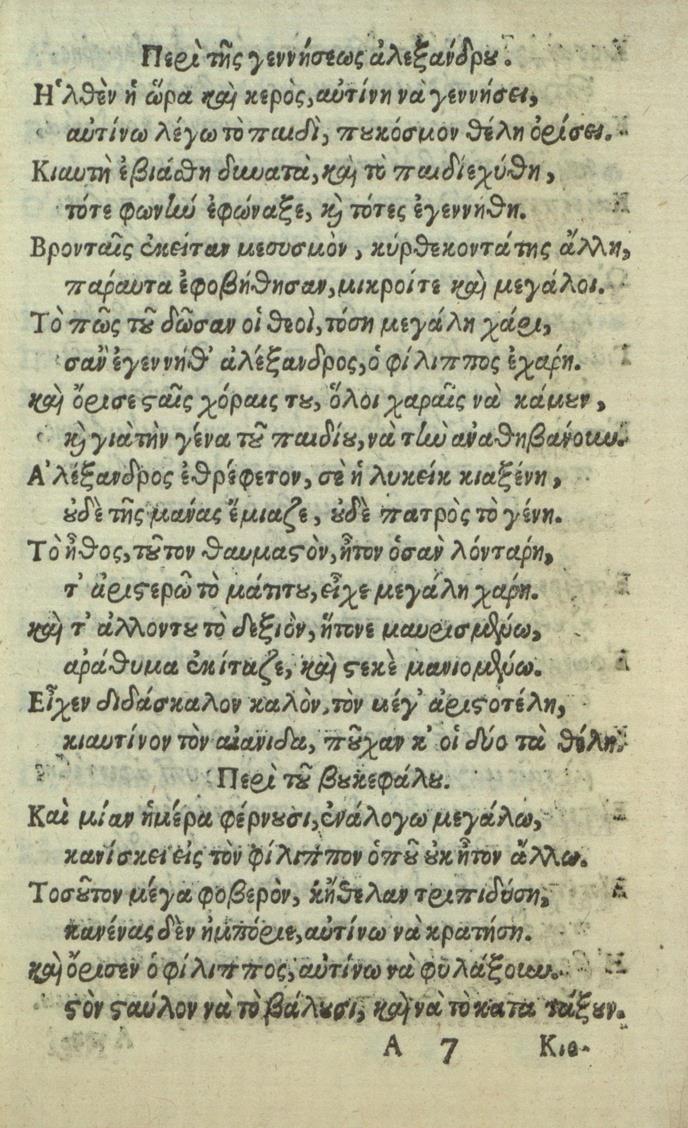 Περὶ τῆς γεννήσεως ἀλεξανδρου.
Ἦλθὲν ἡ ὥρα καὶ κερὸς, αὐτίνη νὰ γεννήσει,
αὐτίνω λέγω τὸ παιδὶ, πουκόσμον θέλη ὁρίσει.
Κιαυτὴ ἐβιάσθη δυνατὰ, καὶ τὸ παιδὶεχύθη,
τότε φωνὴν ἐφώναξε, καὶ τότες ἐγεννήθη.
Βρονταῖς ἐκεῖταν μεσυσμὸν, κύρθεκοντά της ἄλλη,
παράυτα ἐφοβήθησαν, μικροίτε καὶ μεγάλοι.
Τὸ πῶς τοῦ δῶσαν οἱ θεοὶ, τόση μεγάλη χάρι,
σαν ἐγεννήθ' ἀλέξανδρος, ὁ φίλιππος ἐχάρη.
καὶ ὅρισε σταῖς χόραις του, ὅλοι χαραῖς νὰ κάμουν,
καὶ γιατὴν γένα τοῦ παιδίου, νὰ τὴν αναθηβάνουν.
Ἀλέξανδρος ἐθρέφετον, σὲ ἡλυκεία κιαξένη,
οὐδὲ τῆς μάνας ἔμιαζε, οὐδὲ πατρὸς τὸ γένη.
Τὸ ἦθος, τοῦτον θαυμαστὸν, ἦτον ὁσὰν λόνταρη,
τ' ἀριστερῶ τὸ μάτιτου, εἶχε μεγάλη χαρη.
καὶ τ' ἀλλοντου τὸ δεξιὸν, ἤτονε μαυρισμένω,
αράθυμα ἐκίταζε, καὶ στεκὲ μανιομένω.
Εἶχεν διδάσκαλον καλὸν, τὸν μέγ' ἀριστοτέλη,
κιαυτίνον τὸν , ποῦχαν κ' οἱ δύο τὰ θέλη.
Περὶ τοῦ βουκεφάλου.
Καὶ μίαν ἡμέρα φέρνουσι, ἐνάλογω μεγάλω,
κανίσκει εἰς τὸν φίλιππον ὁποῦ οὐκ ἦτον ἄλλω.
Τοσοῦτον μέγα φοβερὸν, κἤθελαν τριπιδύση,
κανένας δὲν ἠμπόριε, αὐτίνω νὰ κρατήση.
καὶ ὅρισεν ὁ φίλιππος, αὐτίνω νὰ φυλάξουν.
στὸν σταύλον νὰ τὸ βάλουσι, καὶ νὰ τὸ κατα τάξουν.
Α 7 Κια-